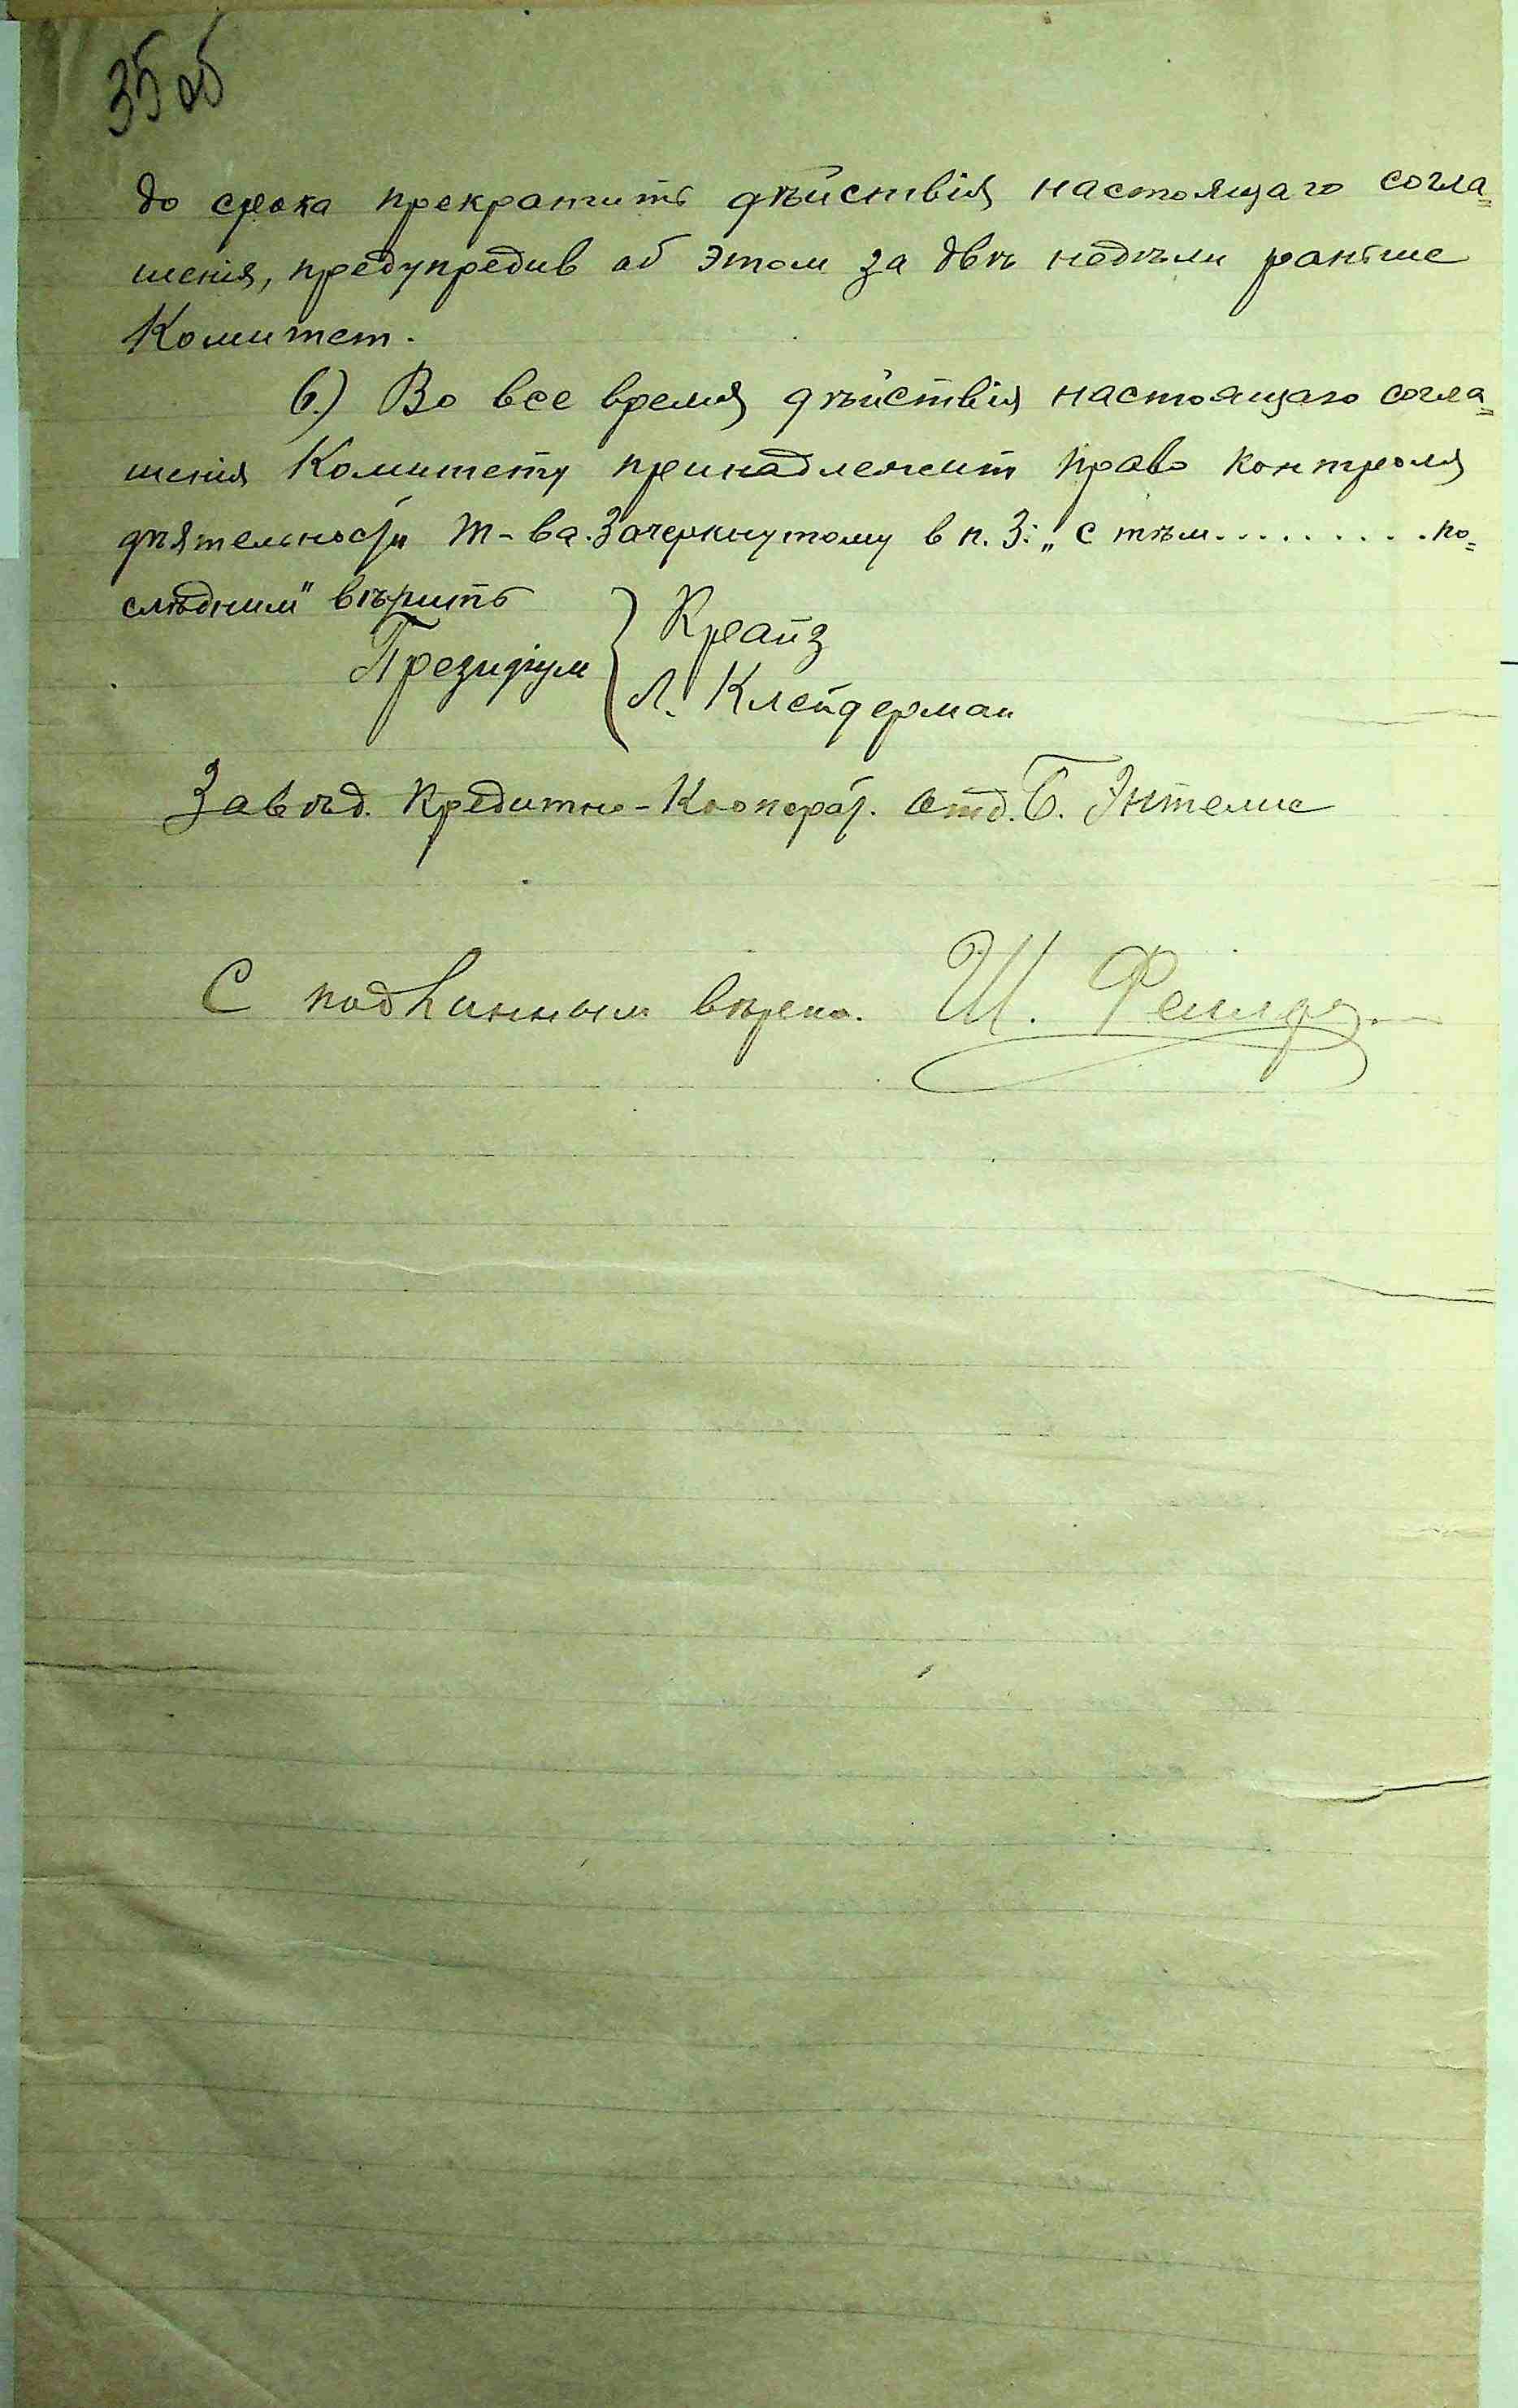 35 об
до срока прекратить дѣйствія настоящаго согла=
шенія, предупредив об этом за двѣ недѣли раньше
Комитет.
6.) Во все время дѣйствія настоящаго согла=
шенія Комитету принадлежит право контроля
дѣятельности т-ва. Зачеркнутому в п. 3: „с тѣм.......... по=
слѣдним" вѣрить
Президіум { Крайз
Л. Клейдерман
Завѣд. Кредитно-Коопрат. Отд. Б. Энтелис
С подлинным вѣрно. Ш.